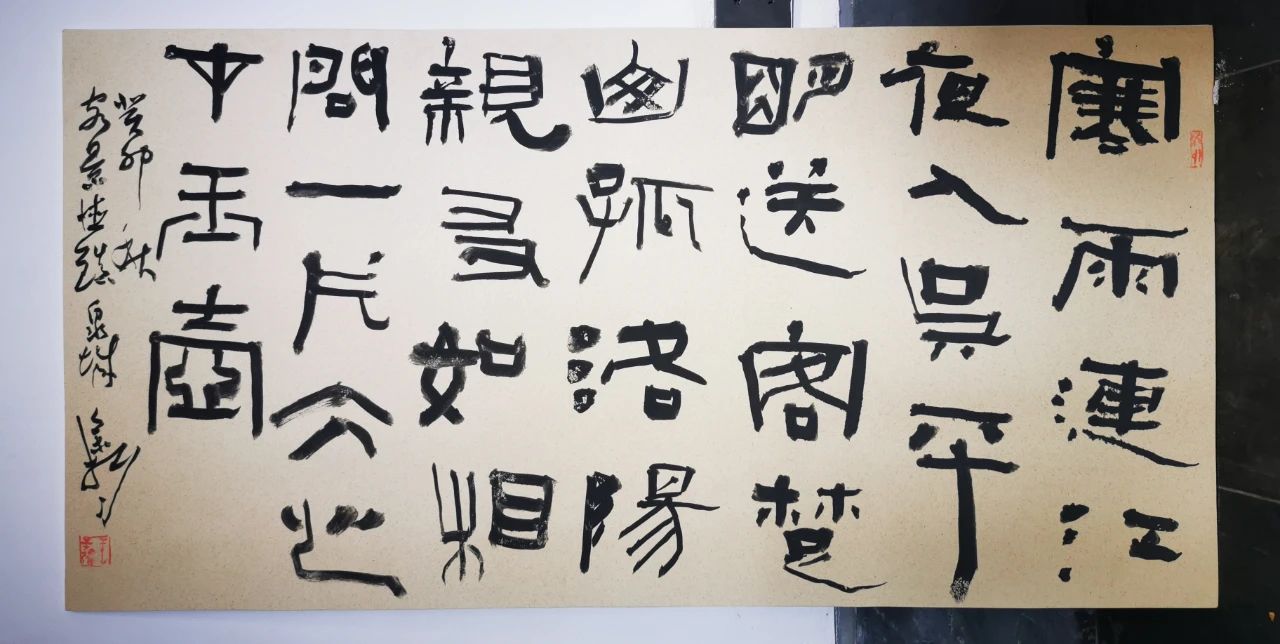 寒雨連江
夜入吳平
明送客楚
山孤洛陽
親友如相
問一片仌心
在玉壺
癸卯秋
客景德鎮